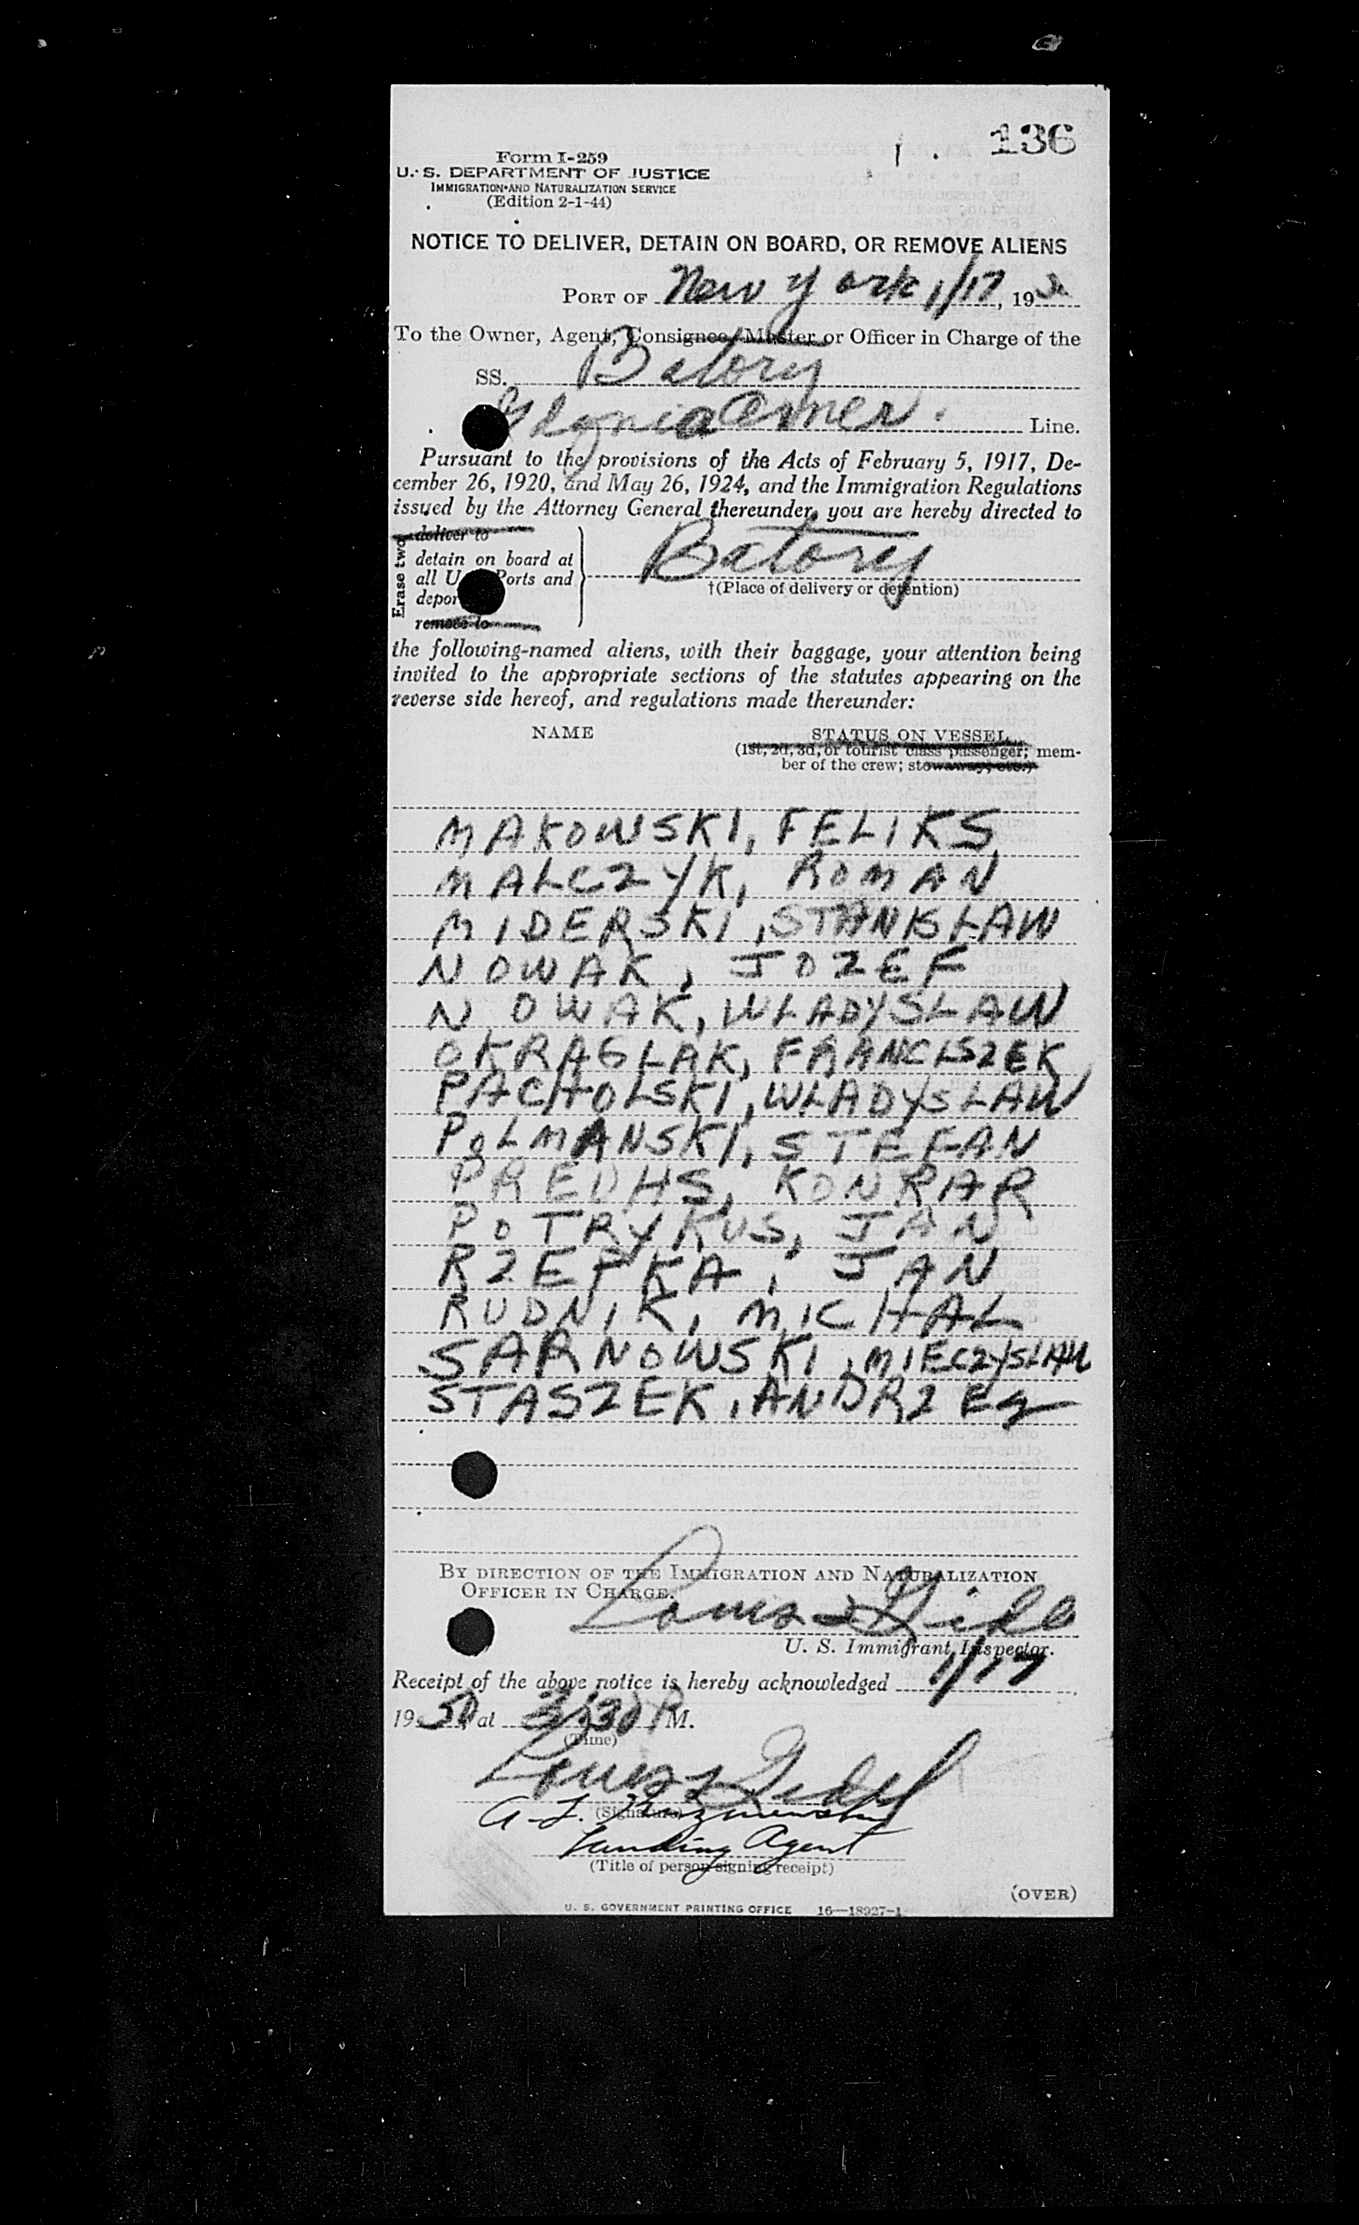 136
Form I-259
U. S. DEPARTMENT OF JUSTICE
IMMIGRATION AND NATURALIZATION SERVICE
(Edition 2-1-44)
NOTICE TO DELIVER, DETAIN ON BOARD, OR REMOVE ALIENS
PORT OF New York 1/17, 19
To the Owner, Agent, Consignee, Master or Officer in Charge of the
SS. Batory
Gdynia Line.
Pursuant to the provisions of the Acts of February 5, 1917, De-
cember 26, 1920, and May 26, 1924, and the Immigration Regulations
issued by the Attorney General thereunder, you are hereby directed to
Erase two
deliver to
detain on board at
all U. Ports and
depor
remove to
Batory
†(Place of delivery or detention)
the following-named aliens, with their baggage, your attention being
invited to the appropriate sections of the statutes appearing on the
reverse side hereof, and regulations made thereunder:
NAME STATUS ON VESSEL
(1st, 2d, 3d, or tourist class passenger; mem-
ber of the crew; stowaway, etc.)
MAKOWSKI, FELIKS
MALCZYK, ROMAN
MIDERSKI, STANISLAW
NOWAK, JOZEF
NOWAK, WLADYSLAW
OKRAGLAK, FRANCISZEK
PACHOLSKI, WLADYSLAW
POLMANSKI, STEFAN
PREUHS, KONRAR
POTRYKUS, JAN
RZEPKA, JAN
RUDNIK, MICHAL
SARNOWSKI, MIECZYSLAW
STASZEK, ANDRZEJ
BY DIRECTION OF THE IMMIGRATION AND NATURALIZATION
OFFICER IN CHARGE.
Louis
U. S. Immigrant Inspector.
Receipt of the above notice is hereby acknowledged 1/17
1950, at 3:30 P M.
(Time)
Louis
(Signature)
A. J.
Landing Agent
(Title of person signing receipt)
(OVER)
U. S. GOVERNMENT PRINTING OFFICE 16—18927-1